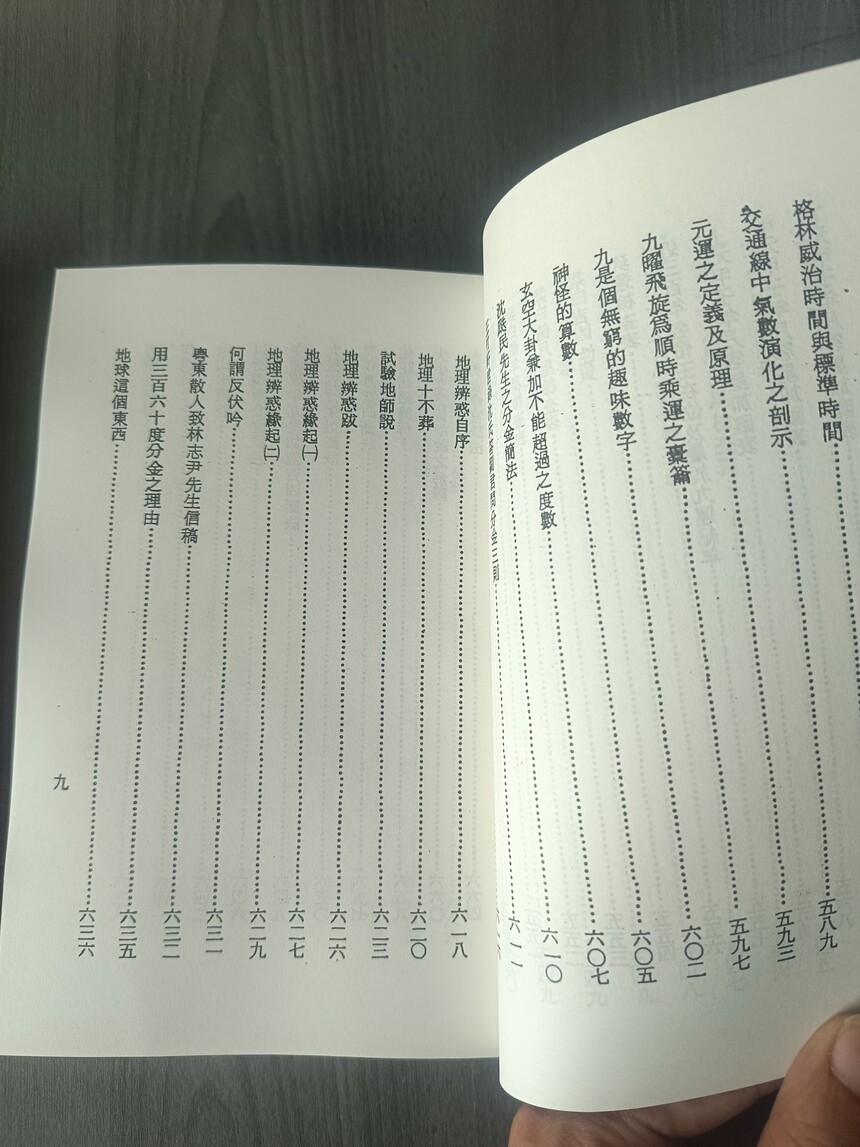 格林威治時間與標準時間……五八九
交通線中氣數演化之剖示……五九三
元運之定義及原理……五九七
九曜飛旋爲順時乘運之橐籥……六〇二
九是個無窮的趣味數字……六〇五
神怪的算數……六〇七
玄空大卦兼加不能超過之度數……六一〇
民先生之分金簡法……六一一
問分金三則
地理辨惑自序……六一八
地理十不葬……六二〇
試驗地師說……六二三
地理辨惑跋……六二六
地理辨惑緣起㈠……六二七
地理辨惑緣起㈡……六二九
何謂反伏吟……六三一
粵東散人致林志尹先生信稿……六三二
用三百六十度分金之理由……六三五
地球這個東西……六三六
九